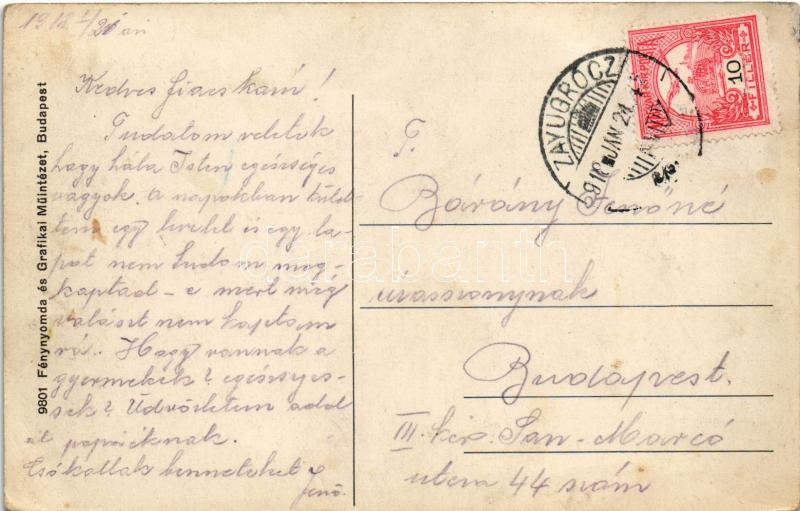 1918 I/21 én
Kedves fiacskám!
Tudatom veletek
hogy hála Isten egészséges
vagyok. A napokban küld-
tem egy levelet is egy la-
pot nem tudom meg-
kaptad-e mert még
választ nem kaptam
rá. Hogy vannak a
gyermekek? egészsége-
sek? Üdvözletem add
át papáéknak.
Csókollak benneteket
Jenő.
9801 Fénynyomda és Grafikai Műintézet, Budapest
ZAYUGRÓCZ
918 JAN 21
MAGYAR
10
FILLÉR
T.
Bárány Jenőné
úrasszonynak
Budapest.
III. ker. San-Marcó
utca 44 szám
darabanth